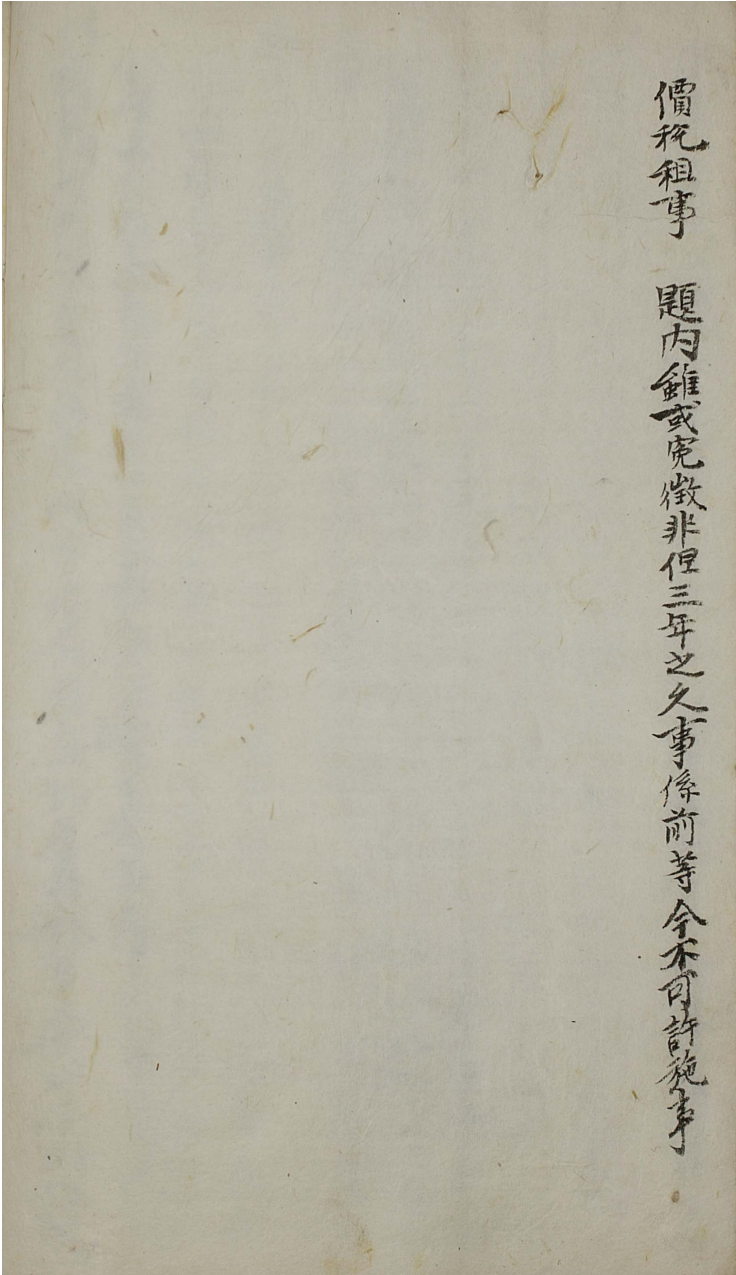 價稅租事 題內雖或冤徵非但三年之久事係前等今不可許施事